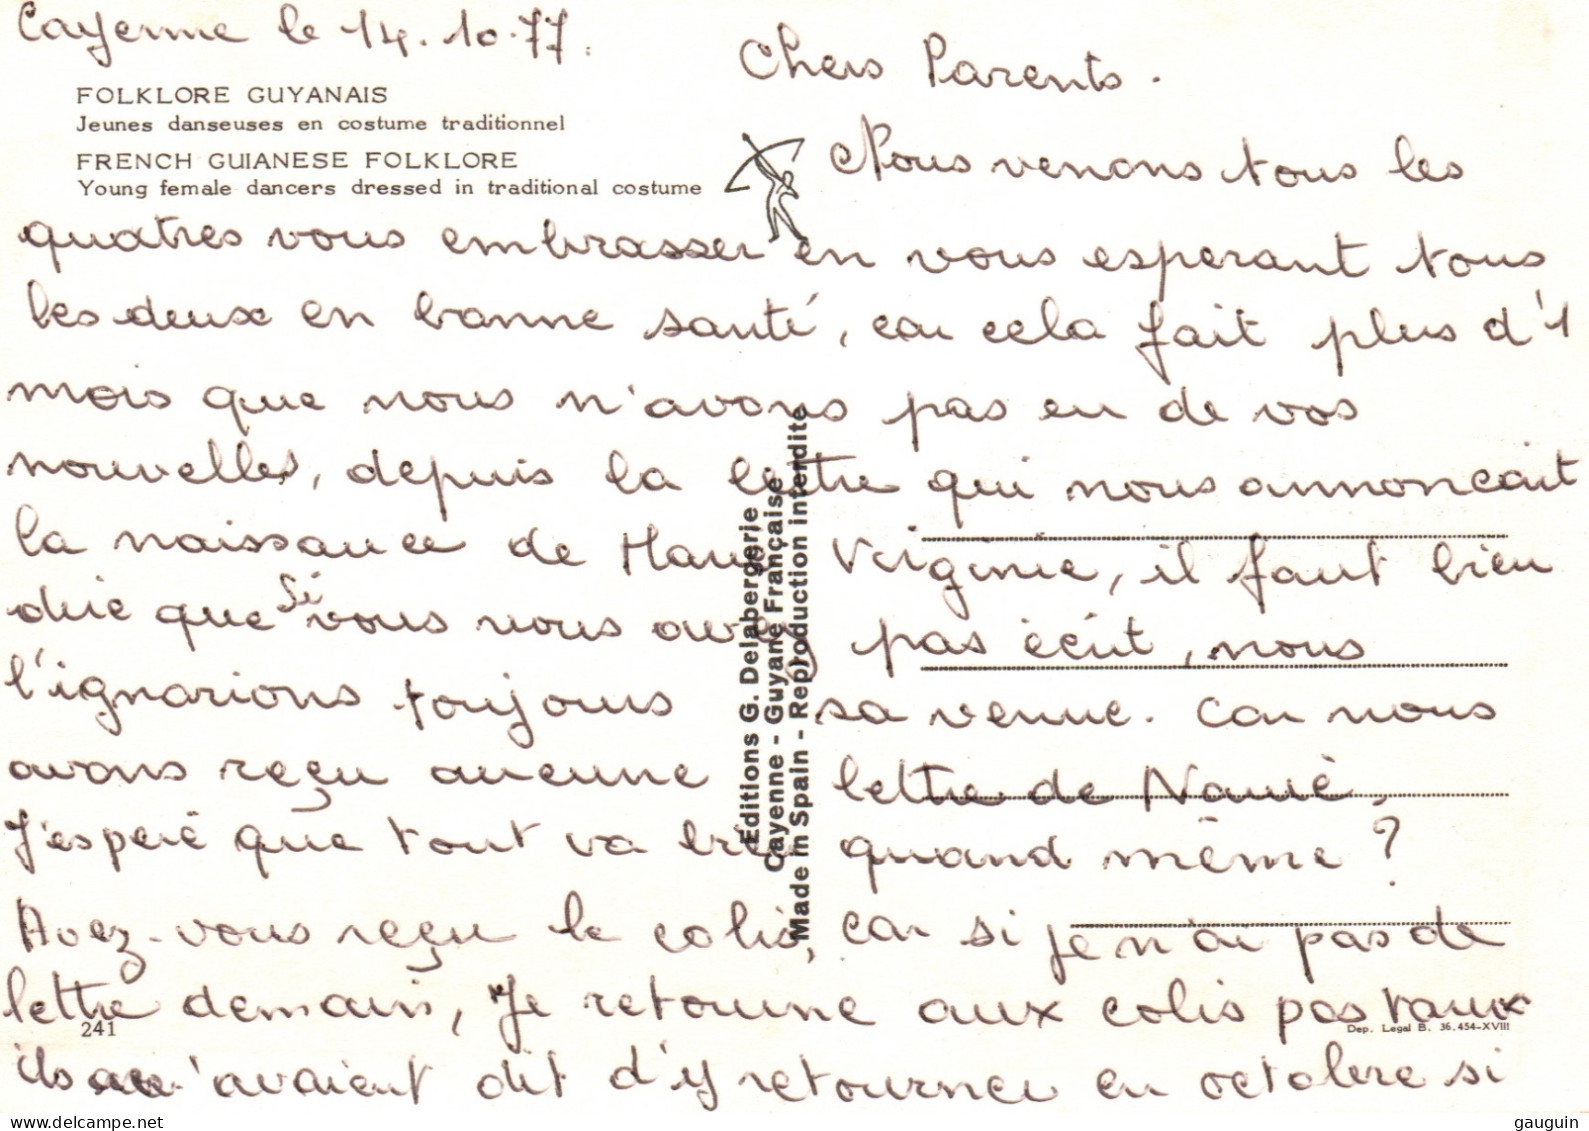 Cayenne le 14.10.77.
FOLKLORE GUYANAIS
Jeunes danseuses en costume traditionnel
FRENCH GUIANESE FOLKLORE
Young female dancers dressed in traditional costume
Chers Parents.
Nous venons tous les
quatres vous embrasser en vous esperant tous
les deux en bonne santé, car cela fait plus d'1
mois que nous n'avons pas eu de vos
nouvelles, depuis la lettre qui nous annoncait
la naissance de Virginie, il faut bien
dire que si vous nous avez pas écrit, nous
l'ignorions toujours sa venue. Car nous
avons reçu aucune lettre de
J'espère que tout va bien quand même ?
Avez-vous reçu le colis, car si je n'ai pas de
lettre demain, Je retourne aux colis postaux
ils m'avaient dit d'y retourner en octobre si
Editions G. Delabergerie
Cayenne - Guyane Française
Made in Spain - Reproduction interdite
241
Dep. Legal B. 36.454-XVIII
gauguin
www.delcampe.net